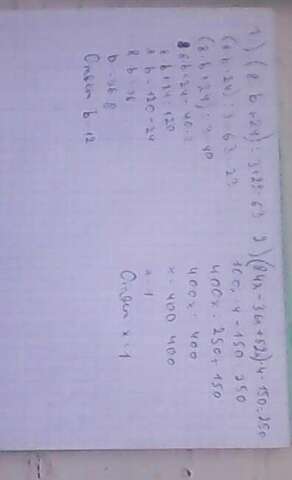 1) (8b+24):3+23=63
(8b+24):3=63-23
(8b+24):3=40
8b+24=40·3
8b+24=120
8b=120-24
8b=96
b=96:8
Ответ b=12
2) (84x-36x+52x)·4-150=250
100x·4-150=250
400x=250+150
400x=400
x=400:400
x=1
Ответ x=1